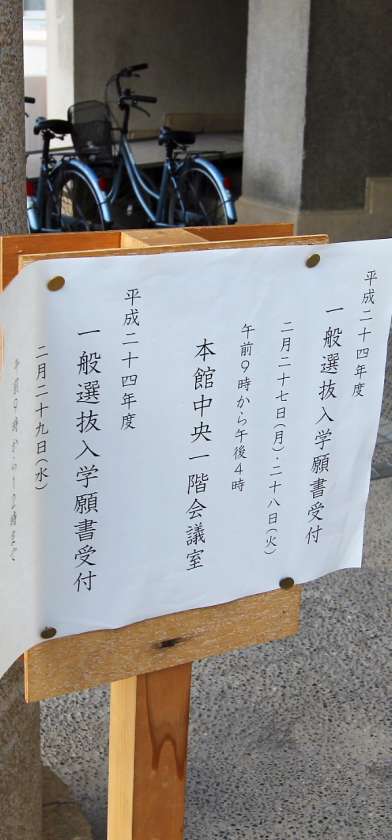 平成二十四年度
一般選抜入学願書受付
二月二十七日(月)・二十八日(火)
午前9時から午後4時
本館中央一階会議室
平成二十四年度
一般選抜入学願書受付
二月二十九日(水)
午前9時から12時まで